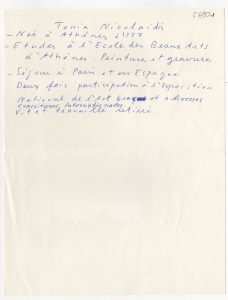 Tonia Nicolaidis
- Née à Athènes 1927
- Etudes à l'Ecole des Beaux Arts
d'Athènes. Peinture et gravure
- Séjour à Paris et en Espagne
Deux fois participation à l'Exposition
National de l'Art et a diverses
expositions Internationales.
Vit et travaille